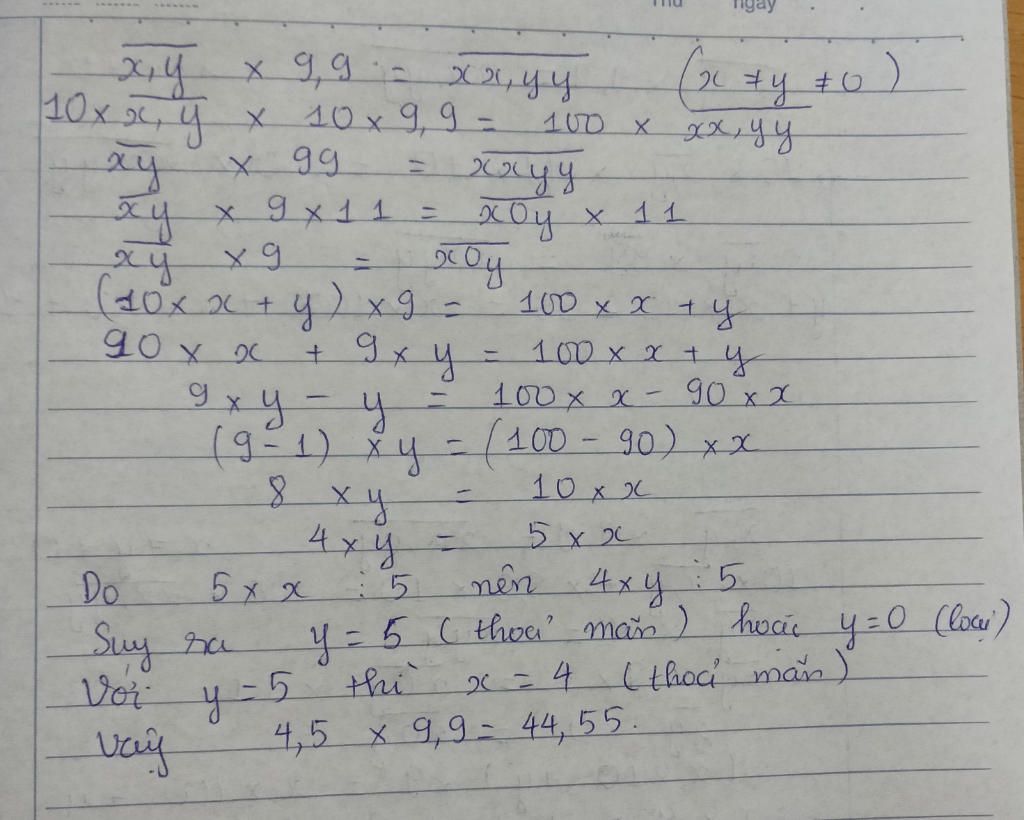 Thứ ngày
x,y × 9,9 = xx,yy (x ≠ y ≠ 0)
10 × x,y × 10 × 9,9 = 100 × xx,yy
xy × 99 = xxyy
xy × 9 × 11 = x0y × 11
xy × 9 = x0y
(10 × x + y) × 9 = 100 × x + y
90 × x + 9 × y = 100 × x + y
9 × y - y = 100 × x - 90 × x
(9 - 1) × y = (100 - 90) × x
8 × y = 10 × x
4 × y = 5 × x
Do 5 × x ⋮ 5 nên 4 × y ⋮ 5
Suy ra y = 5 (thoả mãn) hoặc y = 0 (loại)
Với y = 5 thì x = 4 (thoả mãn)
Vậy 4,5 × 9,9 = 44,55.